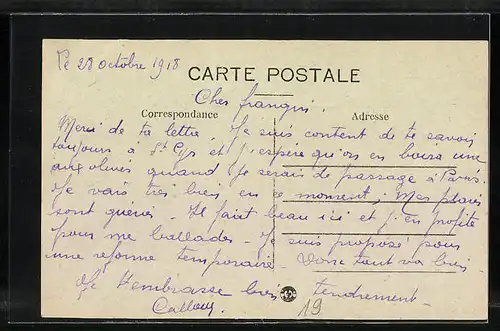 Le 28 octobre 1918
CARTE POSTALE
Cher frangin.
Correspondance
Adresse
Merci de ta lettre, Je suis content de te savoir
toujours à St Cyr et j'espère qu'on en boira une
aux olives quand Je serais de passage à Paris.
Je vais très bien en ce moment, Mes plaies
sont guéries - Il fait beau ici et j'en profite
pour me ballader - Je suis proposé pour
une reforme temporaire Donc tout va bien -
Je t'embrasse bien tendrement -
19